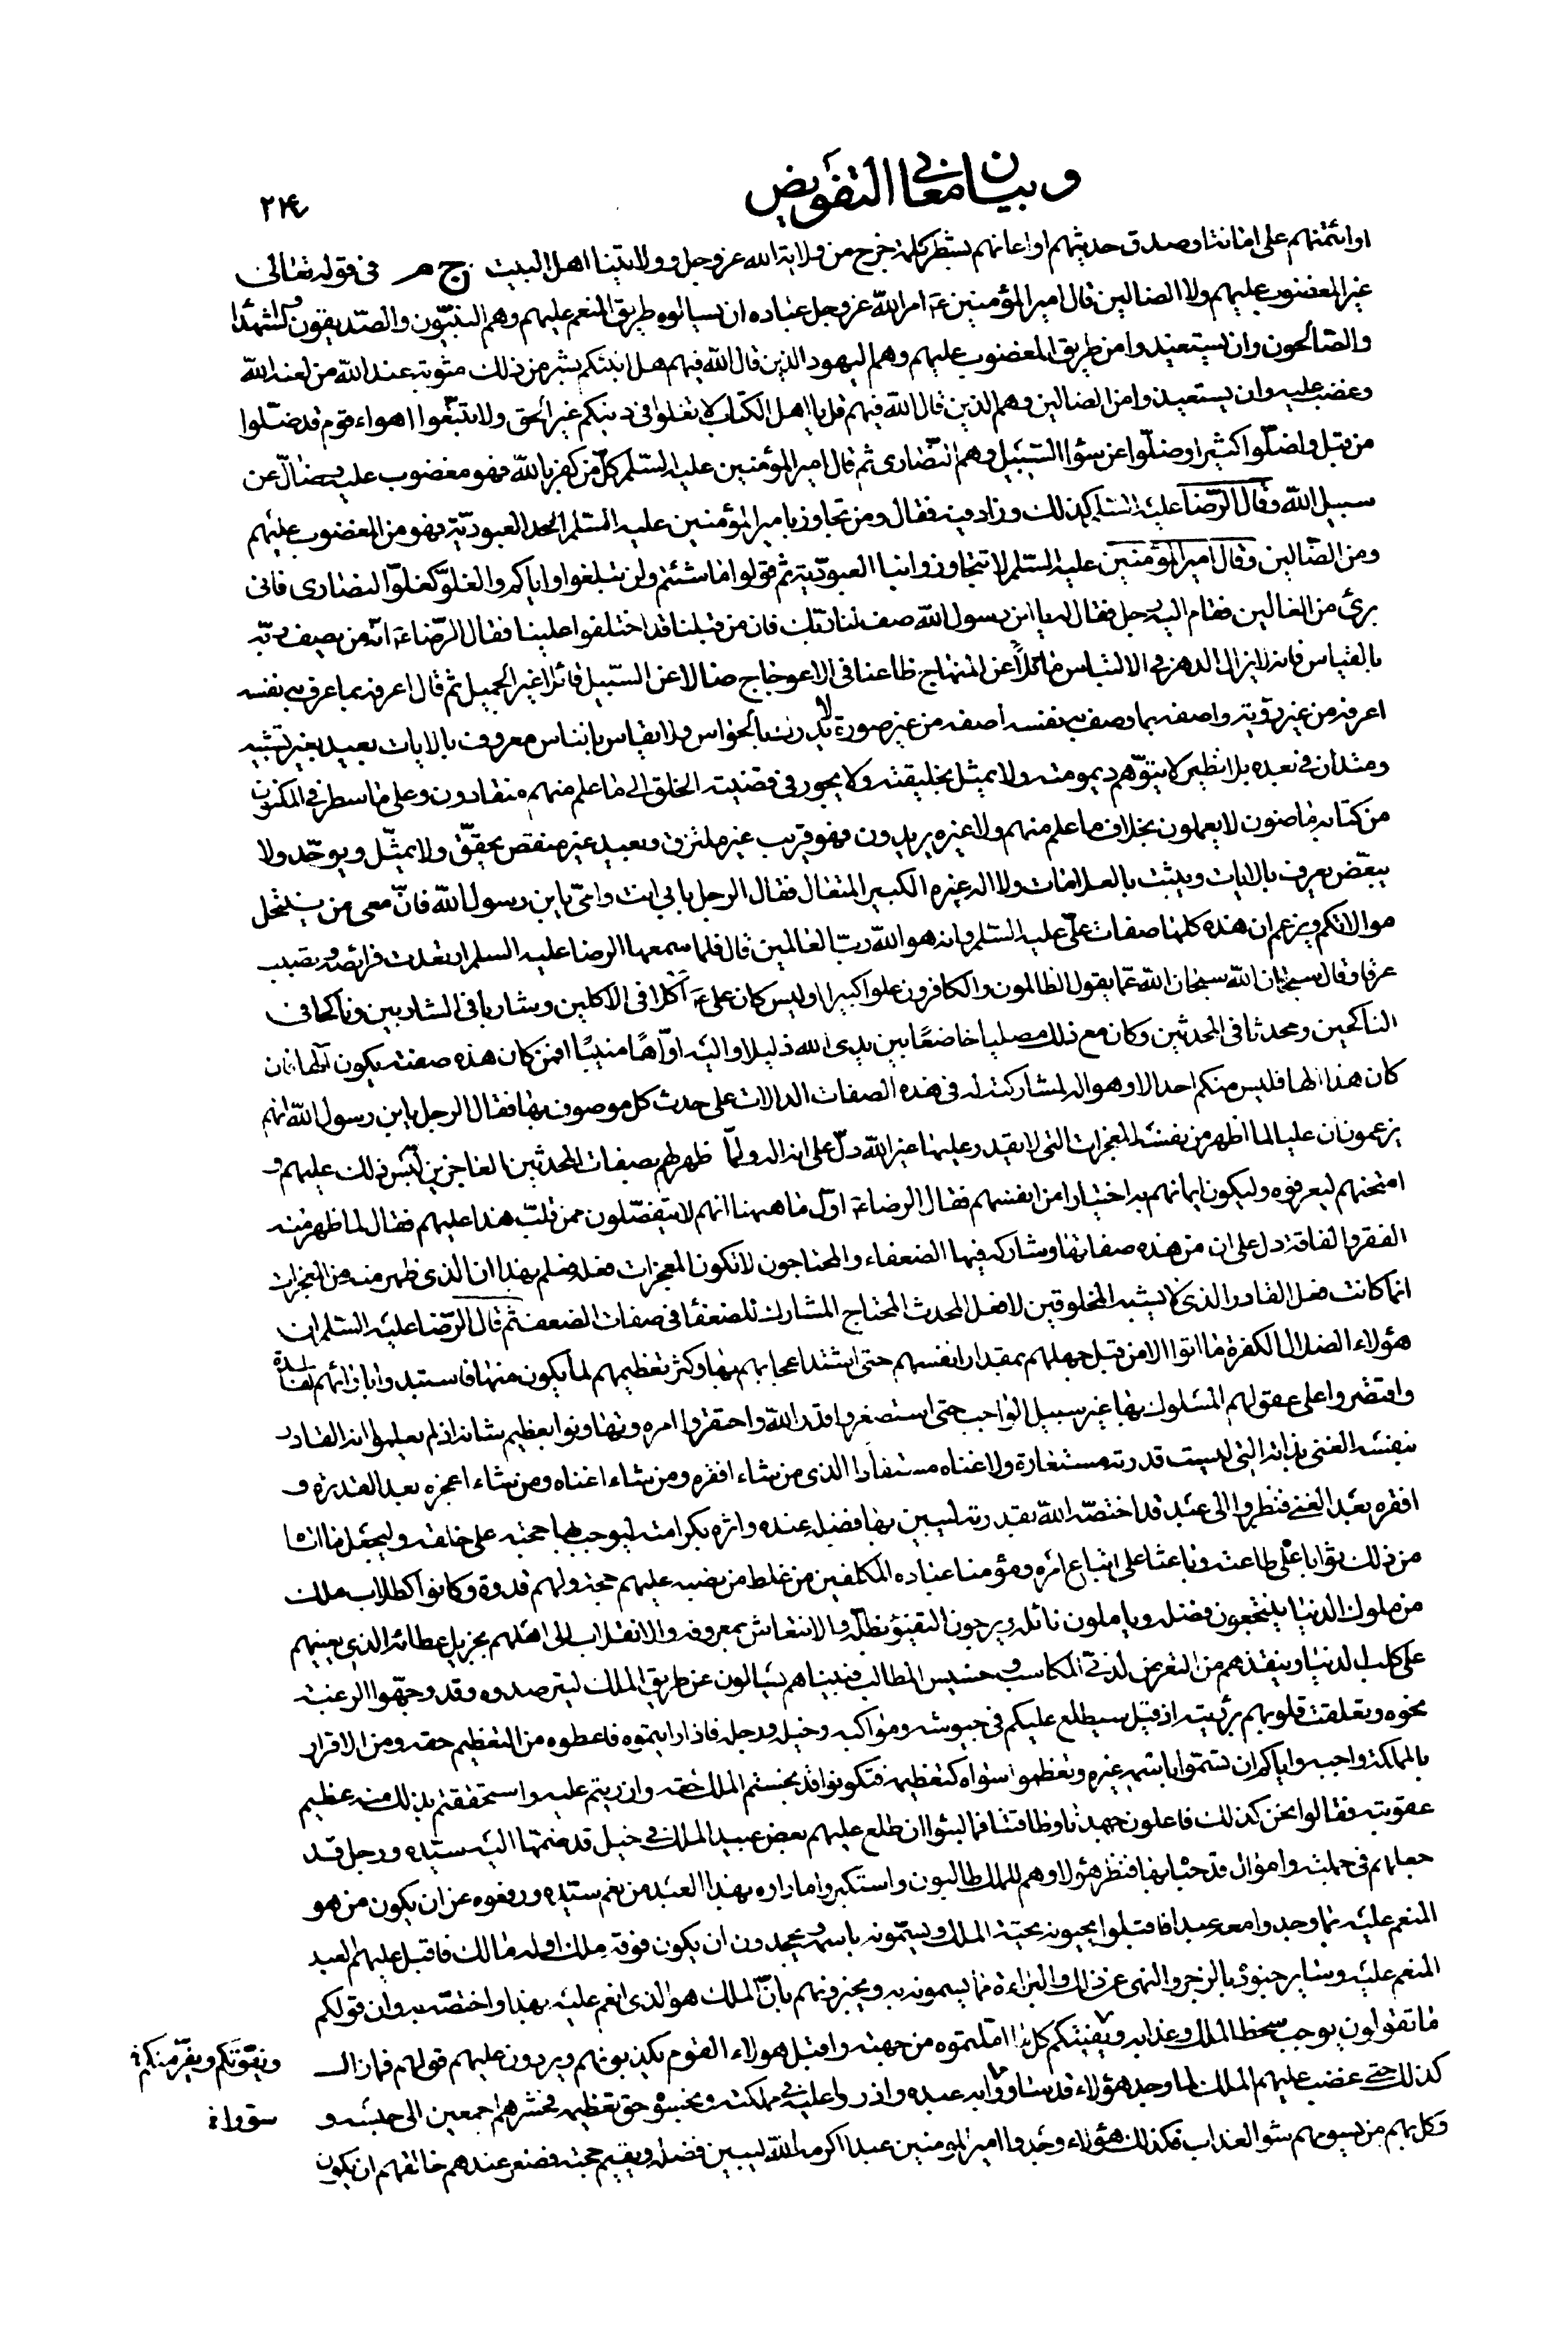 وبيان معاني التفويض
٢٤٧
او ائتمنهم على امانة او صدق حديثهم او اعانهم بشطر كلمة خرج من ولاية الله عز وجل وولايتنا اهل البيت ج م في قوله تعالى
غير المغضوب عليهم ولا الضالين قال امير المؤمنين ع امر الله عز وجل عباده ان يسالوه طريق المنعم عليهم وهم النبيّون والصّديقون والشهداء
والصّالحون وان يستعيذوا من طريق المغضوب عليهم وهم اليهود الذين قال الله فيهم هل انبئكم بشر من ذلك مثوبة عند الله من لعنه الله
وغضب عليه وان يستعيذوا من الضالين وهم الذين قال الله فيهم قل يا اهل الكتاب لا تغلوا في دينكم غير الحق ولا تتبّعوا اهواء قوم قد ضلّوا
من قبل واضلّوا كثيرا وضلّوا عن سواء السّبيل وهم النّصارى ثم قال امير المؤمنين عليه السّلم كلّ من كفر بالله فهو مغضوب عليه وضالّ عن
سبيل الله وقال الرّضا عليه السّلم كذلك وزاد فيه فقال ومن تجاوز بامير المؤمنين عليه السّلم الحد العبوديّة فهو من المغضوب عليهم
ومن الضّالين وقال امير المؤمنين عليه السّلم لا تتجاوزوا بنا العبوديّة ثم قولوا ما شئتم ولن تبلغوا واياكم والغلوّ كغلوّ النصارى فانى
برئ من الغالين فقام اليه رجل فقال له يا ابن رسول الله صف لنا ربّك فان من قبلنا قد اختلفوا علينا فقال الرّضا ع انّه من يصف ربّه
بالقياس فانه لا يزال الدهر في الالتباس مائلاً عن المنهاج ظاعنا في الاعوجاج ضالا عن السّبيل قائلا غير الجميل ثم قال اعرفه بما عرف به نفسه
اعرفه من غير رؤية واصفه بما وصف به نفسه اصفه من غير صورة لا يدرك بالحواس ولا يقاس بالناس معروف بالايات بعيد بغير تشبيه
ومتدان في بعده بلا نظير لا يتوّهم ديمومته ولا يمثل بخليقته ولا يجور في قضيته الخلق الى ما علم منهم منقادون وعلى ما سطر في المكنون
من كتابه ماضون لا يعملون بخلاف ما علم منهم ولا غيره يريدون فهو قريب غير ملتزق وبعيد غير منقص يحقّق ولا يمثّل ويوحّد ولا
يبعّض يعرف بالايات ويثبت بالعلامات ولا اله غيره الكبير المتعال فقال الرجل بابي انت وامّى يا بن رسول الله فانّ معى من ينتحل
موالاتكم ويزعم ان هذه كلها صفات علىّ عليه السّلم وانه هو الله ربّ العالمين قال فلما سمعها الرضا عليه السلم ارتعدت فرائصه وتصبب
عرقا وقال سبحان الله سبحان الله عمّا يقول الظالمون والكافرون علوا كبيرا اوليس كان على ع آكلا في الاكلين وشاربا في الشاربين وناكحا في
الناكحين ومحدثا في المحدثين وكان مع ذلك مصليا خاضعًا بين يدي الله ذليلا واليه اوّاهًا منيبًا افمن كان هذه صفته يكون الها فان
كان هذا الها فليس منكم احد الا وهو اله لمشاركته له في هذه الصفات الدالات على حدث كل موصوف بها فقال الرجل يا بن رسول الله انهم
يزعمون ان عليا لما اظهر من نفسه المعجزات التى لا يقدر عليها غير الله دلّ على انه اله ولمّا ظهر لهم بصفات المحدثين العاجزين لبّس ذلك عليهم و
امتحنهم ليعرفوه وليكون ايمانهم به اختيارا من انفسهم فقال الرضا ع اوّل ما هيهنا انهم لا ينفصّلون ممن قلب هذا عليهم فقال لما ظهر منه
الفقر والفاقة دل على ان من هذه صفاته وشاركه فيها الضعفاء والمحتاجون لا تكون المعجزات فعله فعلم بهذا ان الذى ظهر منه من المعجزات
انما كانت فعل القادر الذى لا يشبه المخلوقين لا فعل المحدث المحتاج المشارك للضعفاء في صفات الضعف ثم قال الرّضا عليه السّلم ان
هؤلاء الضلال الكفرة ما اتوا الا من قبل جهلهم بمقدار انفسهم حتى اشتد اعجابهم بها وكثر تعظيمهم لما يكون منها فاستبدوا بارائهم الفاسدة
واقتصروا على عقولهم المسلوك بها غير سبيل الواجب حتى استصغروا قدر الله واحتقروا امره وتهاونوا بعظيم شانه اذ لم يعلموا انه القادر
بنفسه الغنى بذاته التى ليست قدرته مستعارة ولا غناه مستفادا الذى من شاء افقره ومن شاء اغناه ومن شاء اعجزه بعد القدرة و
افقره بعد الغنى فنظروا الى عبد قد اختصّه الله بقدرته ليبين بها فضله عنده واثره بكرامته ليوجب بها حجته على خلقه وليجعل ما اتاه
من ذلك ثوابا على طاعته وباعثا على اتباع امره ومؤمنا عباده المكلفين من غلط من نصبه عليهم حجة ولهم قدوة وكانوا كطلاب ملك
من ملوك الدنيا ينتجعون فضله ويأملون نائله ويرجون التفيؤ بظلّه والانتعاش بمعروفه والانقلاب الى اهلهم بجزيل عطائه الذى يعينهم
على كلب الدنيا وينقذهم من التعرض لدنّى المكاسب وخسيس المطالب فبيناهم يسالون عن طريق الملك ليترصدوه وقد وجّهوا الرغبة
نحوه وتعلقت قلوبهم برؤيته اذ قيل سيطلع عليكم في جيوشه ومواكبه وخيله ورجله فاذا رايتموه فاعطوه من التعظيم حقه ومن الاقرار
بالمملكة واجبه واياكم ان تسمّوا باسمه غيره وتعظموا سواه كتعظيمه فتكونوا قد بخستم الملك حقه وازريتم عليه واستحققتم بذلك منه عظيم
عقوبته فقالوا نحن كذلك فاعلون جهدنا وطاقتنا فما لبثوا ان طلع عليهم بعض عبيد الملك في خيل قد ضمّها اليه سيّده ورجل قد
جعلهم في جملته واموال قد حباه بها فنظر هؤلاء وهم للملك طالبون واستكبروا ما راوه بهذا العبد من نعم سيّده ورفعوه عن ان يكون من هو
المنعم عليه بما وجدوا معه عبدا فاقبلوا يحيونه بتحية الملك ويسمّونه باسمه ويجحدون ان يكون فوقه ملك او له مالك فاقبل عليهم العبد
المنعم عليه وساير جنوده بالزجر والنهى عن ذلك والبراءة مما يسمونه به ويخبرونهم بانّ الملك هو الذى انعم عليه بهذا واختصّه به وان قولكم
ما تقولون يوجب سخط الملك وعذابه ويفيتكم كل ما امّلتموه من جهته واقبل هولاء القوم يكذبونهم ويردون عليهم قولهم فما زال
ويفوّتكم ويفرّ منكم
كذلك حتى غضب عليهم الملك لما وجد هؤلاء قد ساووا به عبده وازروا عليه في مملكته وبخسوه حق تعظيمه فحشرهم اجمعين الى حبسه و
وكل بهم من يسومهم سوء العذاب فكذلك هؤلاء وجدوا امير المومنين عبدا اكرمه الله ليبين فضله ويقيم حجته فصغر عندهم خالقهم ان يكون